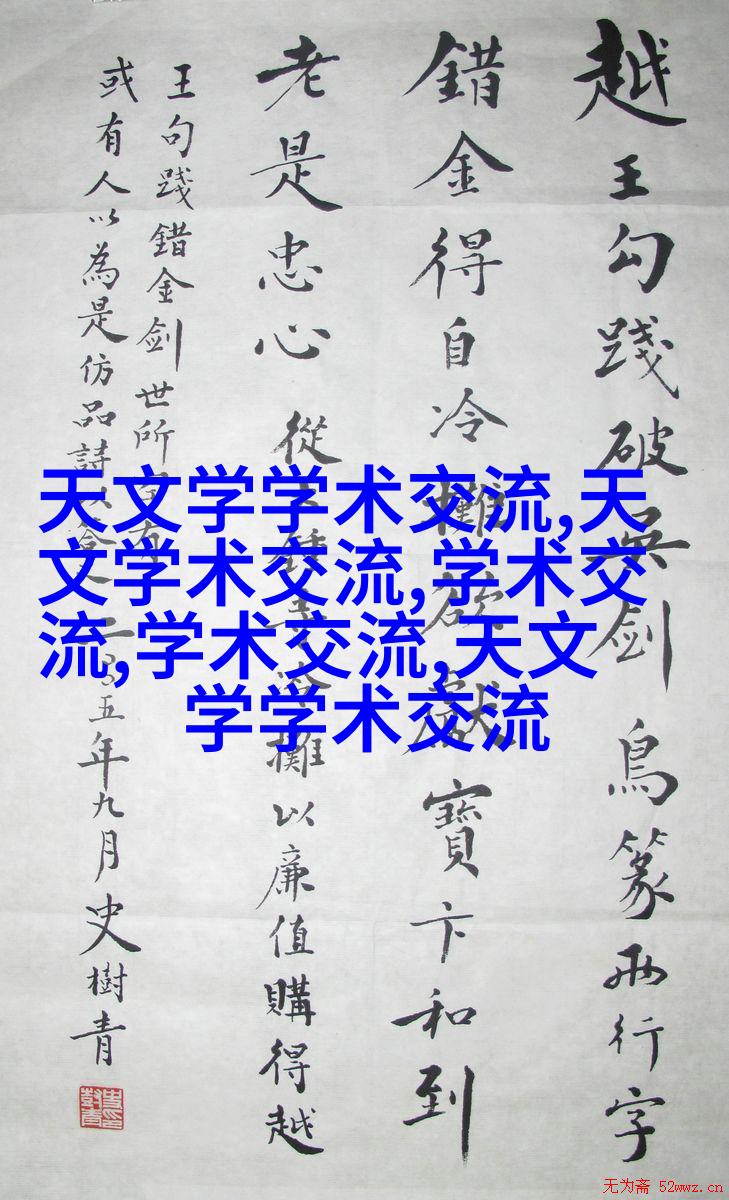 越王勾踐破吳剑鳥篆两行字
錯金得自冷攤欲献寶卞和到
老是忠心 從大鐘寺冷攤以廉值購得越
王句踐錯金剑世所罕有
或有人以為是仿品詩以 二〇〇五年九月史樹青
天文学学术交流,天
文学术交流,学术交
流,学术交流,天文
学学术交流
无为斋 52wwz.cn